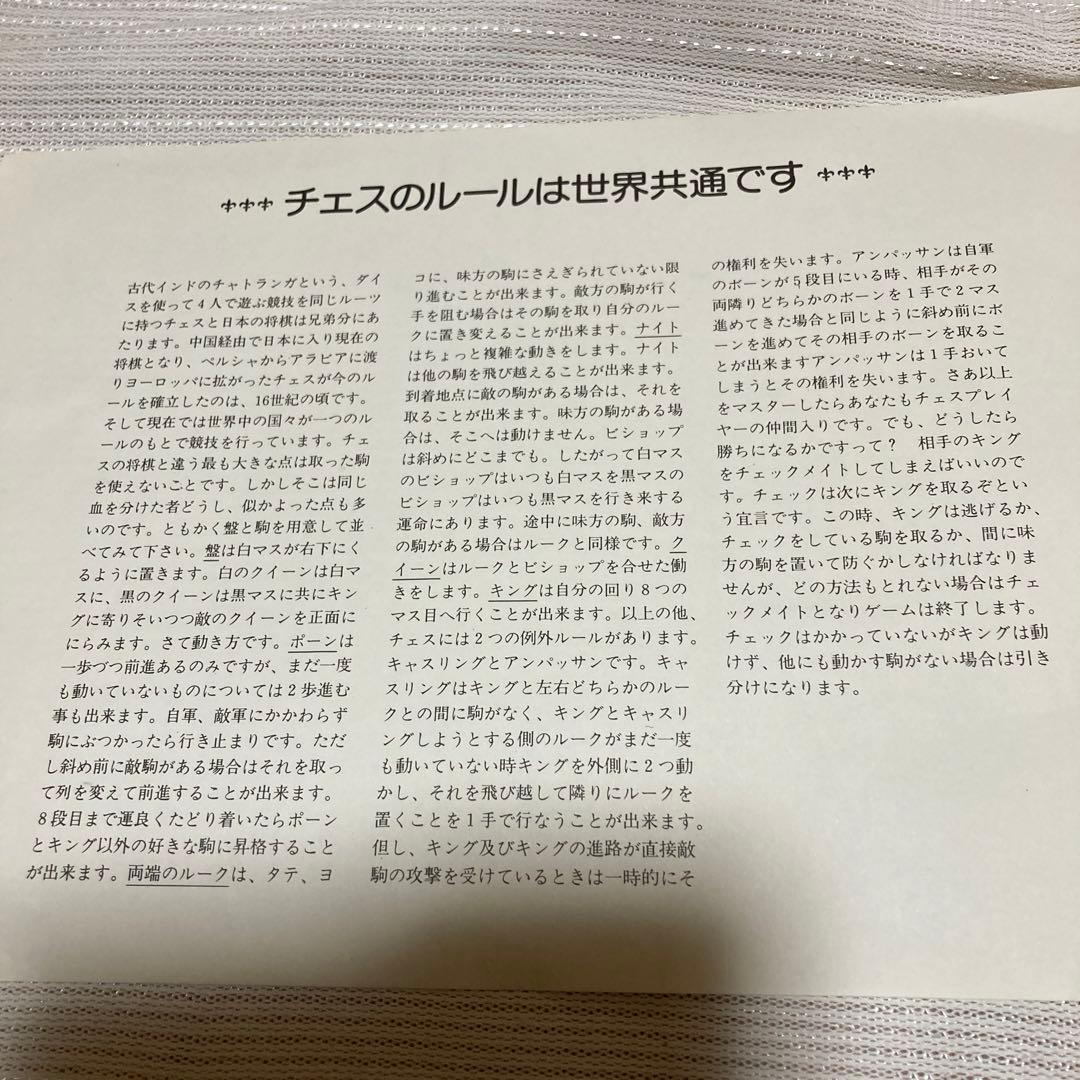 チェスのルールは世界共通です
古代インドのチャトランガという、ダイ
スを使って4人で遊ぶ競技を同じルーツ
に持つチェスと日本の将棋は兄弟分にあ
たります。中国経由で日本に入り現在の
将棋となり、ペルシャからアラビアに渡
りヨーロッパに拡がったチェスが今のル
ールを確立したのは、16世紀の頃です。
そして現在では世界中の国々が一つのル
ールのもとで競技を行っています。チェ
スの将棋と違う最も大きな点は取った駒
を使えないことです。しかしそこは同じ
血を分けた者どうし、似かよった点も多
いのです。ともかく盤と駒を用意して並
べてみて下さい。盤は白マスが右下にく
るように置きます。白のクイーンは白マ
スに、黒のクイーンは黒マスに共にキン
グに寄りそいつつ敵のクイーンを正面に
にらみます。さて動き方です。ポーンは
一歩づつ前進あるのみですが、まだ一度
も動いていないものについては2歩進む
事も出来ます。自軍、敵軍にかかわらず
駒にぶつかったら行き止まりです。ただ
し斜め前に敵駒がある場合はそれを取っ
て列を変えて前進することが出来ます。
8段目まで運良くたどり着いたらポーン
とキング以外の好きな駒に昇格すること
が出来ます。両端のルークは、タテ、ヨ
コに、味方の駒にさえぎられていない限
り進むことが出来ます。敵方の駒が行く
手を阻む場合はその駒を取り自分のルー
クに置き変えることが出来ます。ナイト
はちょっと複雑な動きをします。ナイト
は他の駒を飛び越えることが出来ます。
到着地点に敵の駒がある場合は、それを
取ることが出来ます。味方の駒がある場
合は、そこへは動けません。ビショップ
は斜めにどこまでも。したがって白マス
のビショップはいつも白マスを黒マスの
ビショップはいつも黒マスを行き来する
運命にあります。途中に味方の駒、敵方
の駒がある場合はルークと同様です。ク
イーンはルークとビショップを合せた働
きをします。キングは自分の回り8つの
マス目へ行くことが出来ます。以上の他、
チェスには2つの例外ルールがあります。
キャスリングとアンパッサンです。キャ
スリングはキングと左右どちらかのルー
クとの間に駒がなく、キングとキャスリ
ングしようとする側のルークがまだ一度
も動いていない時キングを外側に2つ動
かし、それを飛び越して隣りにルークを
置くことを1手で行なうことが出来ます。
但し、キング及びキングの進路が直接敵
駒の攻撃を受けているときは一時的にそ
の権利を失います。アンパッサンは自軍
のポーンが5段目にいる時、相手がその
両隣りどちらかのポーンを1手で2マス
進めてきた場合と同じように斜め前にポ
ーンを進めてその相手のポーンを取るこ
とが出来ますアンパッサンは1手おいて
しまうとその権利を失います。さあ以上
をマスターしたらあなたもチェスプレイ
ヤーの仲間入りです。でも、どうしたら
勝ちになるかですって？　相手のキング
をチェックメイトしてしまえばいいので
す。チェックは次にキングを取るぞとい
う宣言です。この時、キングは逃げるか、
チェックをしている駒を取るか、間に味
方の駒を置いて防ぐかしなければなりま
せんが、どの方法もとれない場合はチェ
ックメイトとなりゲームは終了します。
チェックはかかっていないがキングは動
けず、他にも動かす駒がない場合は引き
分けになります。